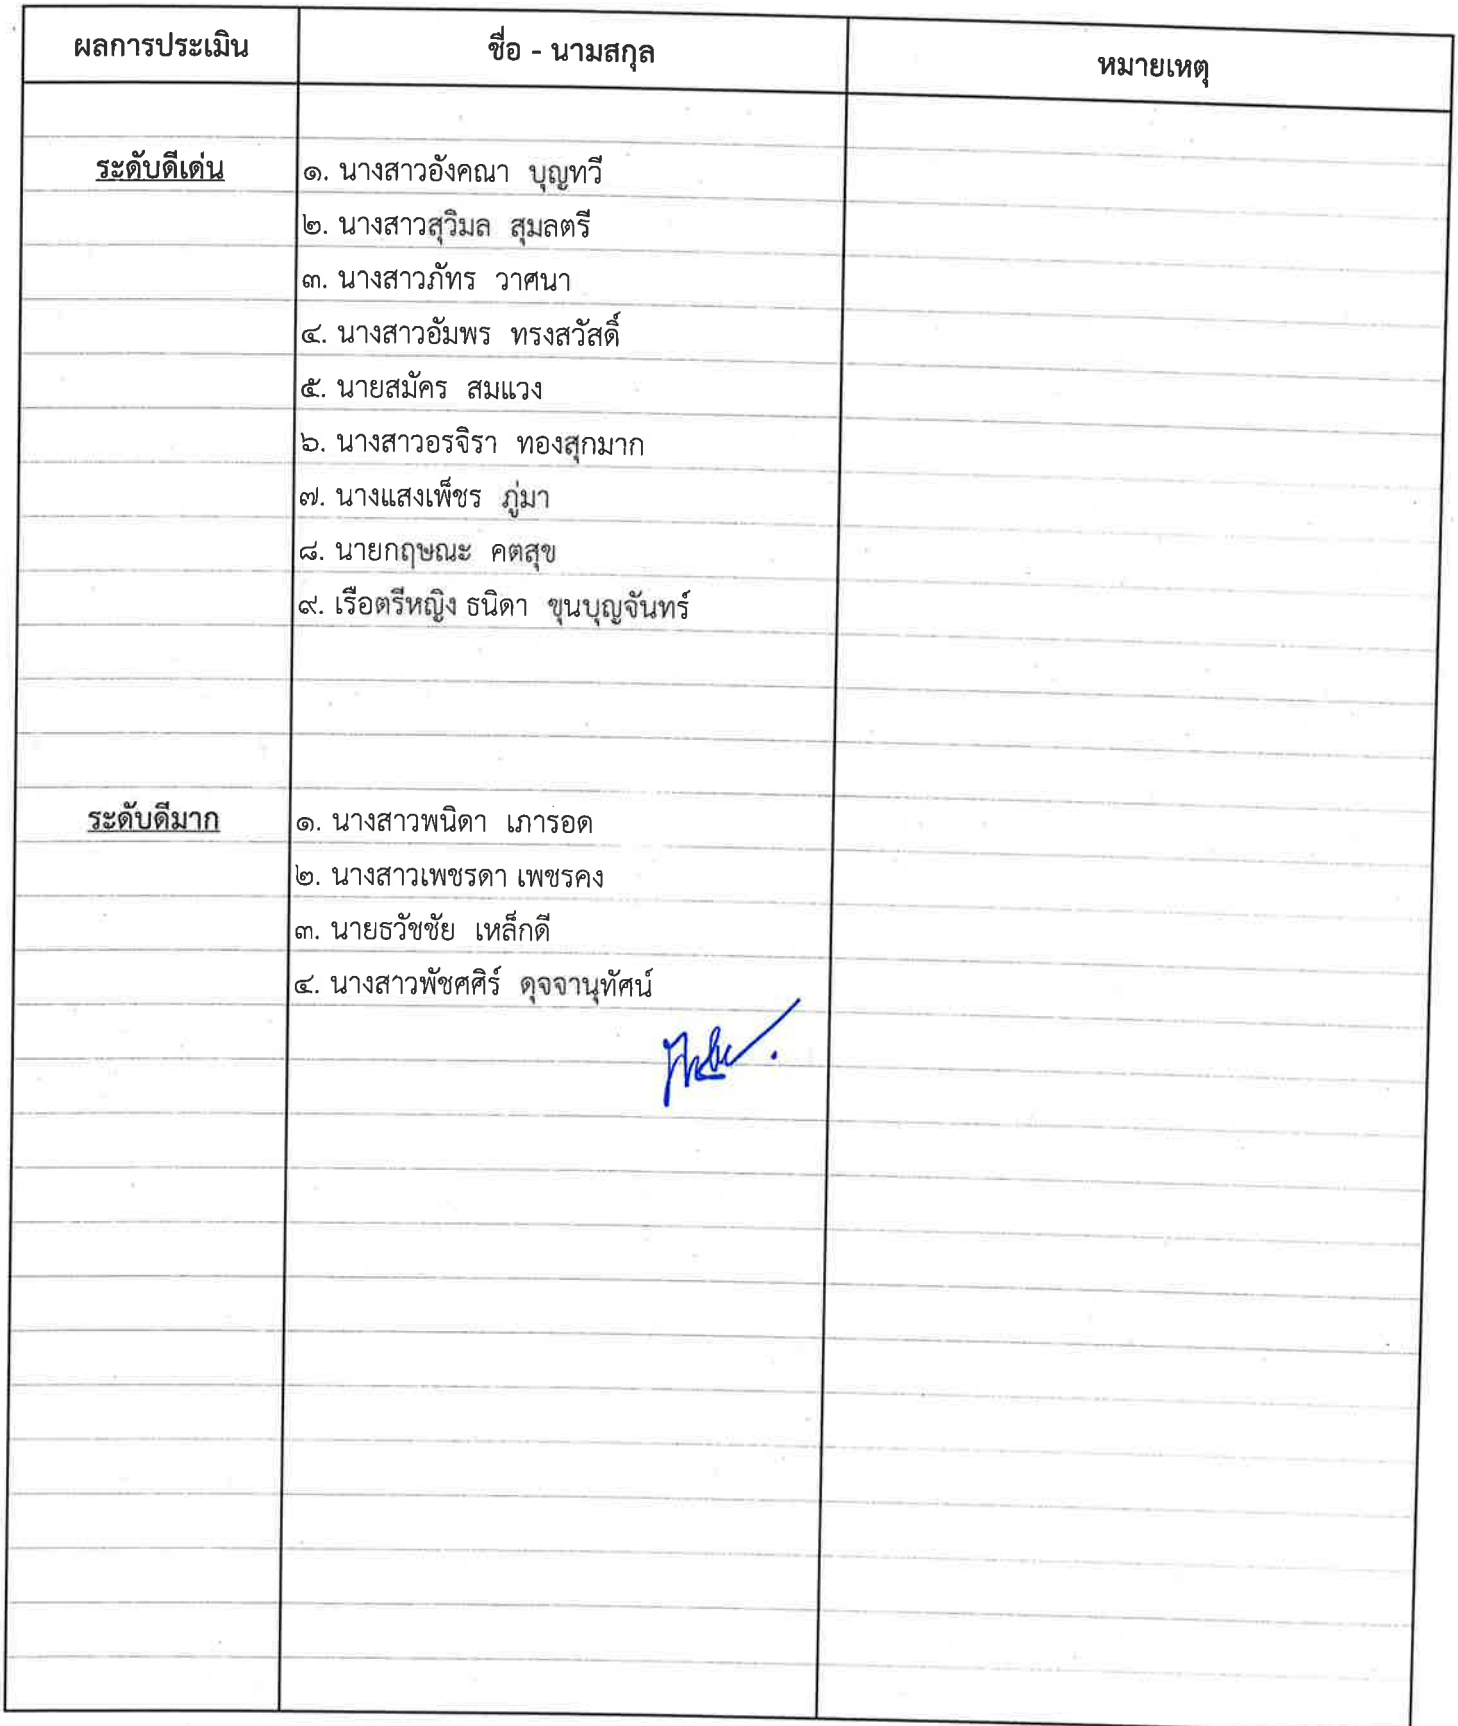 ผลการประเมิน ชื่อ - นามสกุล หมายเหตุ
ระดับดีเด่น ๑. นางสาวอังคณา บุญทวี
๒. นางสาวสุวิมล สุมลตรี
๓. นางสาวภัทร วาศนา
๔. นางสาวอัมพร ทรงสวัสดิ์
๕. นายสมัคร สมแวง
๖. นางสาวอรจิรา ทองสุกมาก
๗. นางแสงเพ็ชร ภู่มา
๘. นายกฤษณะ คตสุข
๙. เรือตรีหญิง ธนิดา ขุนบุญจันทร์
ระดับดีมาก ๑. นางสาวพนิดา เภารอด
๒. นางสาวเพชรดา เพชรคง
๓. นายธวัชชัย เหล็กดี
๔. นางสาวพัชศศิร์ ดุจจานุทัศน์